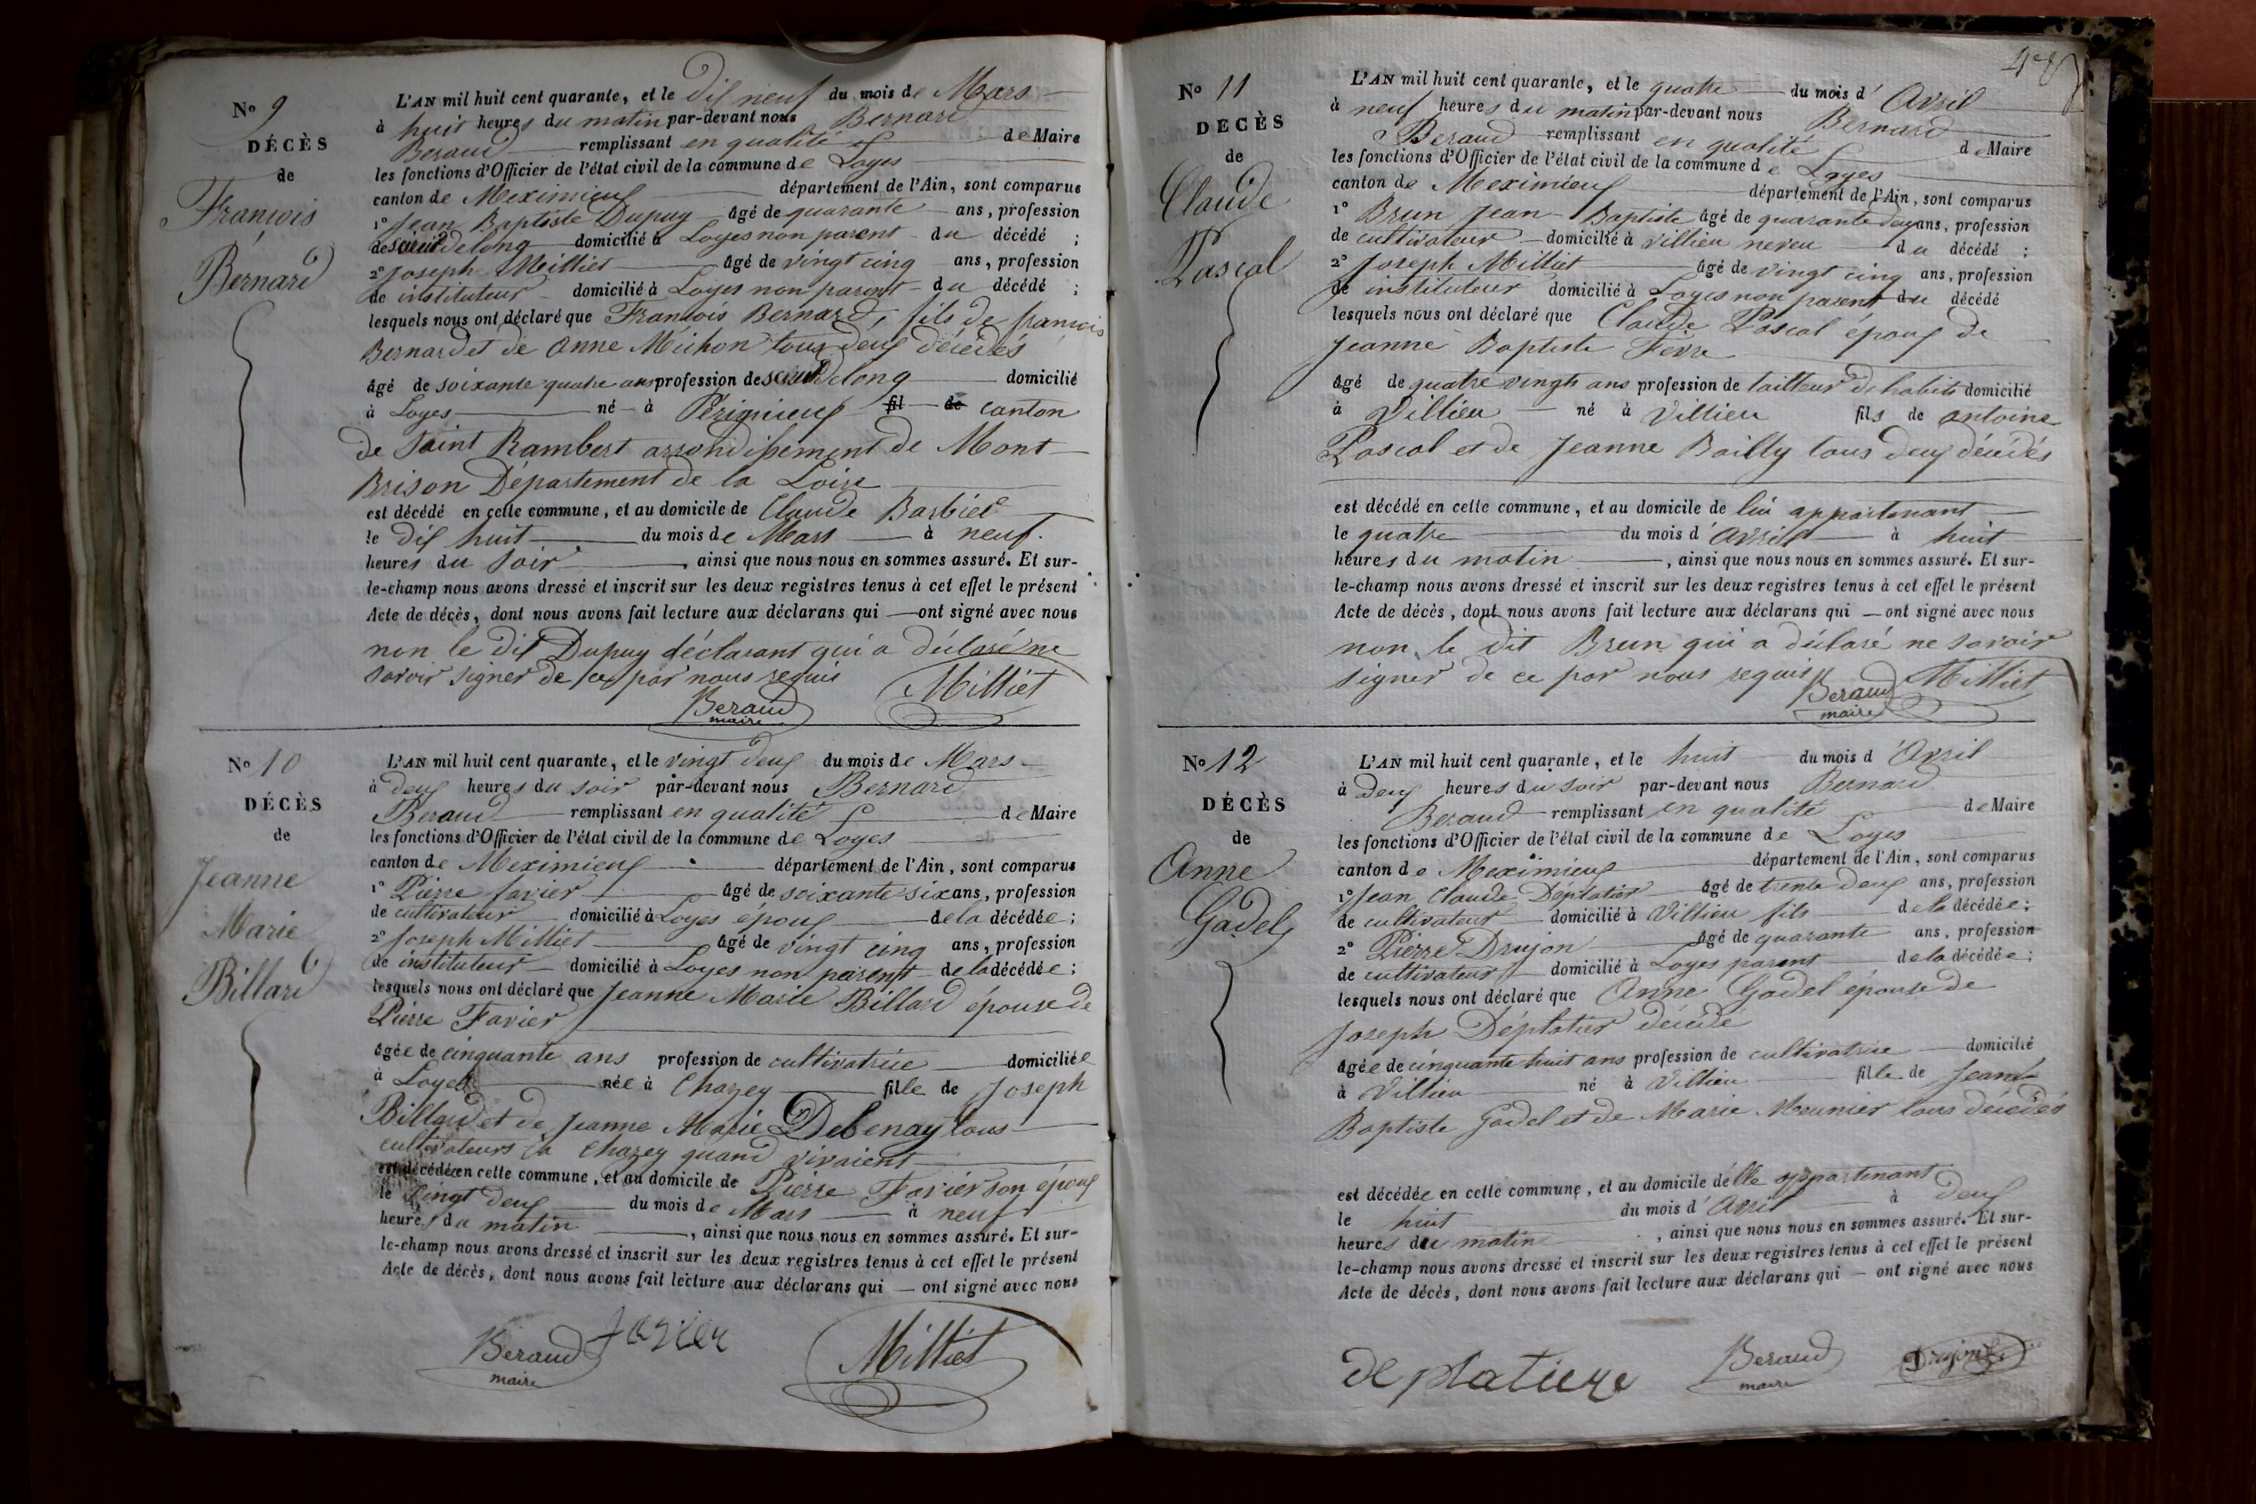 No 9
DÉCÈS
de
François
Bernard
L'AN mil huit cent quarante, et le dix neuf du mois de Mars
à huit heures du matin par-devant nous Bernard
Beraud remplissant en qualité de Maire
les fonctions d'Officier de l'état civil de la commune de Loyes
canton de Meximieux département de l'Ain, sont comparus
1º Jean Baptiste Dupuy âgé de quarante ans, profession
de scieur de long domicilié à Loyes non parent du décédé ;
2º Joseph Milliet âgé de vingt cinq ans, profession
de instituteur domicilié à Loyes non parent du décédé ;
lesquels nous ont déclaré que François Bernard, fils de françois
Bernard et de Anne Michon tous deux décédés
âgé de soixante quatre ans profession de scieur de long domicilié
à Loyes né à Périgneux fil de canton
de Saint Rambert arrondissement de Mont
Brison Département de la Loire
est décédé en cette commune, et au domicile de Claude Barbier
le dix huit du mois de Mars à neuf
heures du soir, ainsi que nous nous en sommes assuré. Et sur-
le-champ nous avons dressé et inscrit sur les deux registres tenus à cet effet le présent
Acte de décès, dont nous avons fait lecture aux déclarans qui ont signé avec nous
non le dit Dupuy déclarant qui a déclaré ne
savoir signer de ce par nous requis
Beraud
maire
Milliet
No 10
DÉCÈS
de
Jeanne
Marie
Billard
L'AN mil huit cent quarante, et le vingt deux du mois de Mars
à deux heures du soir par-devant nous Bernard
Beraud remplissant en qualité de Maire
les fonctions d'Officier de l'état civil de la commune de Loyes
canton de Meximieux département de l'Ain, sont comparus
1º Pierre favier âgé de soixante six ans, profession
de cultivateur domicilié à Loyes époux de la décédée ;
2º Joseph Milliet âgé de vingt cinq ans, profession
de instituteur domicilié à Loyes non parent de la décédée ;
lesquels nous ont déclaré que Jeanne Marie Billard épouse de
Pierre Favier
âgée de cinquante ans profession de cultivatrice domiciliée
à Loyes née à Chazey fille de Joseph
Billard et de Jeanne Marie Debenay tous
cultivateurs à Chazey quand vivaient
est décédée en cette commune, et au domicile de Pierre Favier son époux
le vingt deux du mois de Mars à neuf
heures du matin, ainsi que nous nous en sommes assuré. Et sur-
le-champ nous avons dressé et inscrit sur les deux registres tenus à cet effet le présent
Acte de décès, dont nous avons fait lecture aux déclarans qui ont signé avec nous
Beraud
maire
favier
Milliet
No 11
DÉCÈS
de
Claude
Pascal
L'AN mil huit cent quarante, et le quatre du mois d'Avril
à neuf heures du matin par-devant nous Bernard
Beraud remplissant en qualité de Maire
les fonctions d'Officier de l'état civil de la commune de Loyes
canton de Meximieux département de l'Ain, sont comparus
1º Brun Jean-Baptiste âgé de quarante deux ans, profession
de cultivateur domicilié à Villieu neveu du décédé ;
2º Joseph Milliet âgé de vingt cinq ans, profession
de instituteur domicilié à Loyes non parent du décédé
lesquels nous ont déclaré que Claude Pascal époux de
Jeanne Baptiste Ferre
âgé de quatre vingts ans profession de tailleur de habits domicilié
à Villieu né à Villieu fils de antoine
Pascal et de Jeanne Bailly tous deux décédés
est décédé en cette commune, et au domicile de lui appartenant
le quatre du mois d'avril à huit
heures du matin, ainsi que nous nous en sommes assuré. Et sur-
le-champ nous avons dressé et inscrit sur les deux registres tenus à cet effet le présent
Acte de décès, dont nous avons fait lecture aux déclarans qui ont signé avec nous
non le dit Brun qui a déclaré ne savoir
signer de ce par nous requis
Beraud
maire
Milliet
No 12
DÉCÈS
de
Anne
Gadel
L'AN mil huit cent quarante, et le huit du mois d'Avril
à deux heures du soir par-devant nous Bernard
Beraud remplissant en qualité de Maire
les fonctions d'Officier de l'état civil de la commune de Loyes
canton de Meximieux département de l'Ain, sont comparus
1º Jean Claude Déplatier âgé de trente deux ans, profession
de cultivateur domicilié à Villieu fils de la décédée ;
2º Pierre Drujon âgé de quarante ans, profession
de cultivateur domicilié à Loyes parent de la décédée ;
lesquels nous ont déclaré que Anne Gadel épouse de
Joseph Déplatier décédé
âgée de cinquante huit ans profession de cultivatrice domicilié
à Villieu né à Villieu fille de Jean
Baptiste Gadel et de Marie Meunier tous décédés
est décédée en cette commune, et au domicile de elle appartenant
le huit du mois d'Avril à deux
heures du matin, ainsi que nous nous en sommes assuré. Et sur-
le-champ nous avons dressé et inscrit sur les deux registres tenus à cet effet le présent
Acte de décès, dont nous avons fait lecture aux déclarans qui ont signé avec nous
de platiere
Beraud
maire
Drujon